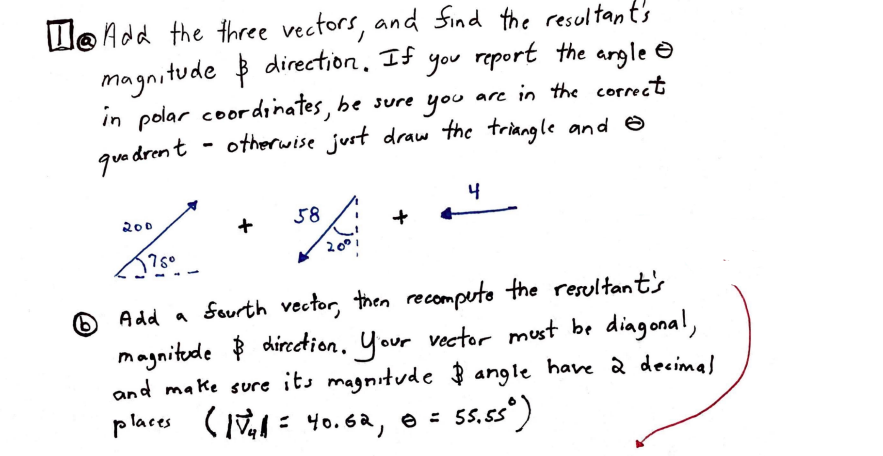 1 a Add the three vectors, and find the resultant's
magnitude & direction. If you report the angle θ
in polar coordinates, be sure you are in the correct
quadrent - otherwise just draw the triangle and θ
200 75° + 58 20° + 4
b Add a fourth vector, then recompute the resultant's
magnitude & direction. Your vector must be diagonal,
and make sure its magnitude & angle have 2 decimal
places (|V⃗₄| = 40.62, θ = 55.55°)